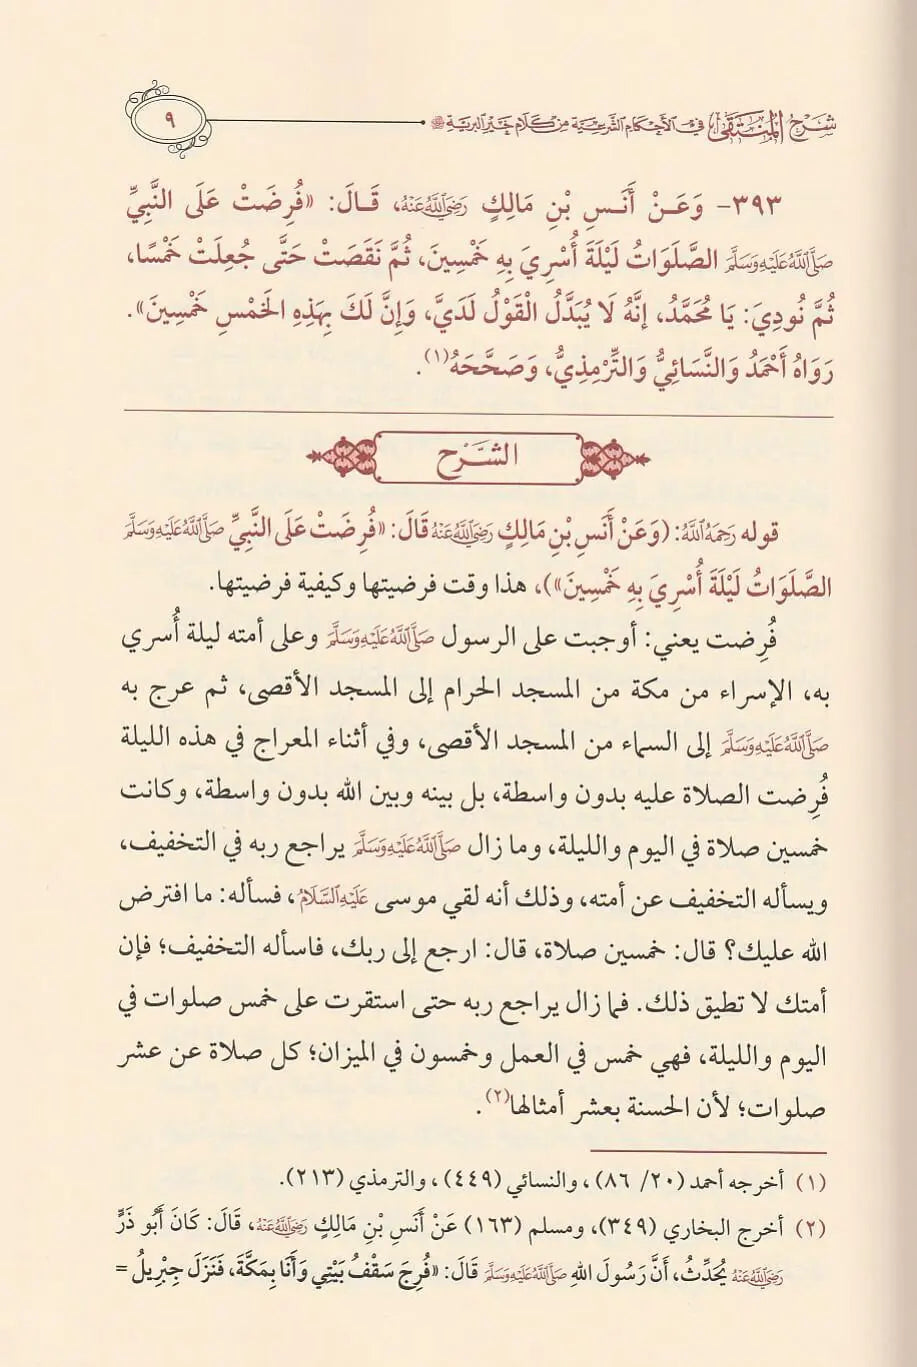 شرح المنتقى في الأحكام الشرعية من كلام خير البرية ﷺ
٩
٣٩٣- وَعَـنْ أَنَـسِ بْنِ مَالِكٍ رَضِيَ اللَّهُ عَنْهُ، قَـالَ: «فُرِضَتْ عَلَى النَّبِيِّ
صَلَّى اللَّهُ عَلَيْهِ وَسَلَّمَ الصَّلَوَاتُ لَيْلَةَ أُسْرِيَ بِهِ خَمْسِينَ، ثُمَّ نَقَصَتْ حَتَّى جُعِلَتْ خَمْسًا،
ثُمَّ نُودِيَ: يَا مُحَمَّدُ، إِنَّهُ لَا يُبَدَّلُ الْقَوْلُ لَدَيَّ، وَإِنَّ لَكَ بِهَذِهِ الخَمْسِ خَمْسِينَ».
رَوَاهُ أَحْمَدُ وَالنَّسَائِيُّ وَالتِّرْمِذِيُّ، وَصَحَّحَهُ(١).
الشَّرْح
قوله رَحِمَهُ اللَّهُ: (وَعَنْ أَنَسِ بْنِ مَالِكٍ رَضِيَ اللَّهُ عَنْهُ قَالَ: «فُرِضَتْ عَلَى النَّبِيِّ صَلَّى اللَّهُ عَلَيْهِ وَسَلَّمَ
الصَّلَوَاتُ لَيْلَةَ أُسْرِيَ بِهِ خَمْسِينَ»)، هذا وقت فرضيتها وكيفية فرضيتها.
فُرِضت يعني: أوجبت على الرسول صَلَّى اللَّهُ عَلَيْهِ وَسَلَّمَ وعلى أمته ليلة أُسري
به، الإسراء من مكة من المسجد الحرام إلى المسجد الأقصى، ثم عرج به
صَلَّى اللَّهُ عَلَيْهِ وَسَلَّمَ إلى السماء من المسجد الأقصى، وفي أثناء المعراج في هذه الليلة
فُرِضت الصلاة عليه بدون واسطة، بل بينه وبين الله بدون واسطة، وكانت
خمسين صلاة في اليوم والليلة، وما زال صَلَّى اللَّهُ عَلَيْهِ وَسَلَّمَ يراجع ربه في التخفيف،
ويسأله التخفيف عن أمته، وذلك أنه لقي موسى عَلَيْهِ السَّلَامُ، فسأله: ما افترض
الله عليك؟ قال: خمسين صلاة، قال: ارجع إلى ربك، فاسأله التخفيف؛ فإن
أمتك لا تطيق ذلك. فما زال يراجع ربه حتى استقرت على خمس صلوات في
اليوم والليلة، فهي خمس في العمل وخمسون في الميزان؛ كل صلاة عن عشر
صلوات؛ لأن الحسنة بعشر أمثالها(٢).
(١) أخرجه أحمد (٢٠/ ٨٦)، والنسائي (٤٤٩)، والترمذي (٢١٣).
(٢) أخرج البخاري (٣٤٩)، ومسلم (١٦٣) عَنْ أَنَسِ بْنِ مَالِكٍ رَضِيَ اللَّهُ عَنْهُ، قَالَ: كَانَ أَبُو ذَرٍّ
رَضِيَ اللَّهُ عَنْهُ يُحَدِّثُ، أَنَّ رَسُولَ اللهِ صَلَّى اللَّهُ عَلَيْهِ وَسَلَّمَ قَالَ: «فُرِجَ سَقْفُ بَيْتِي وَأَنَا بِمَكَّةَ، فَنَزَلَ جِبْرِيلُ =